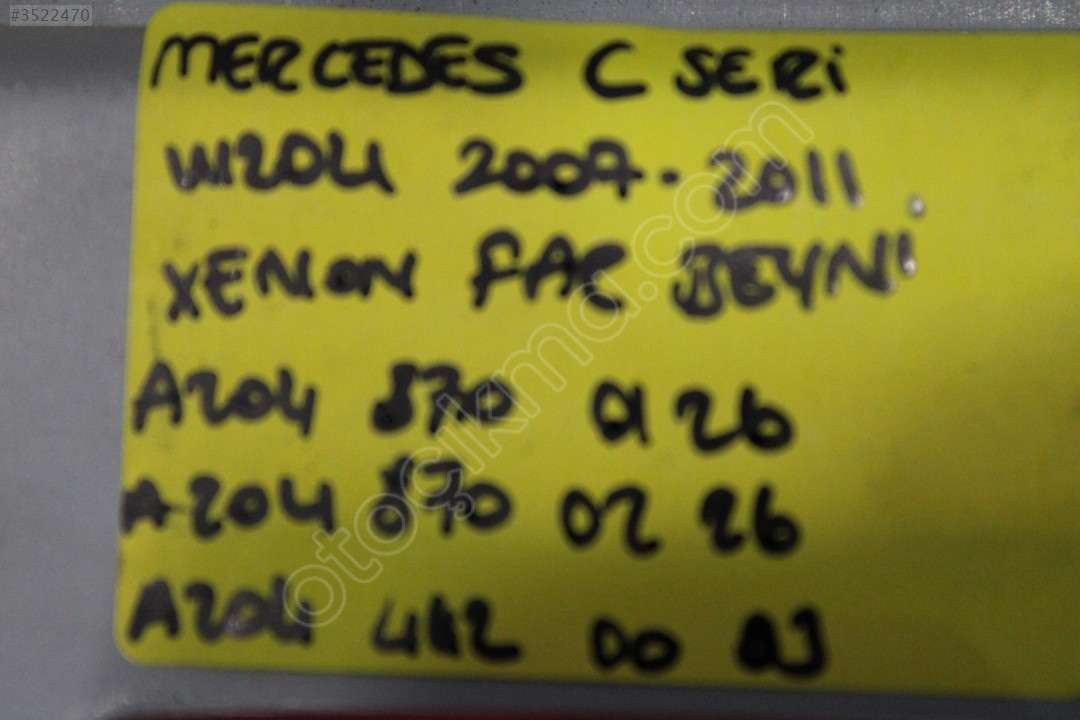 #3522470
MERCEDES C SERİ
W204 2007-2011
XENON FAR BEYNİ
A204 870 01 26
A204 870 02 26
A204 442 00
otocikma.com